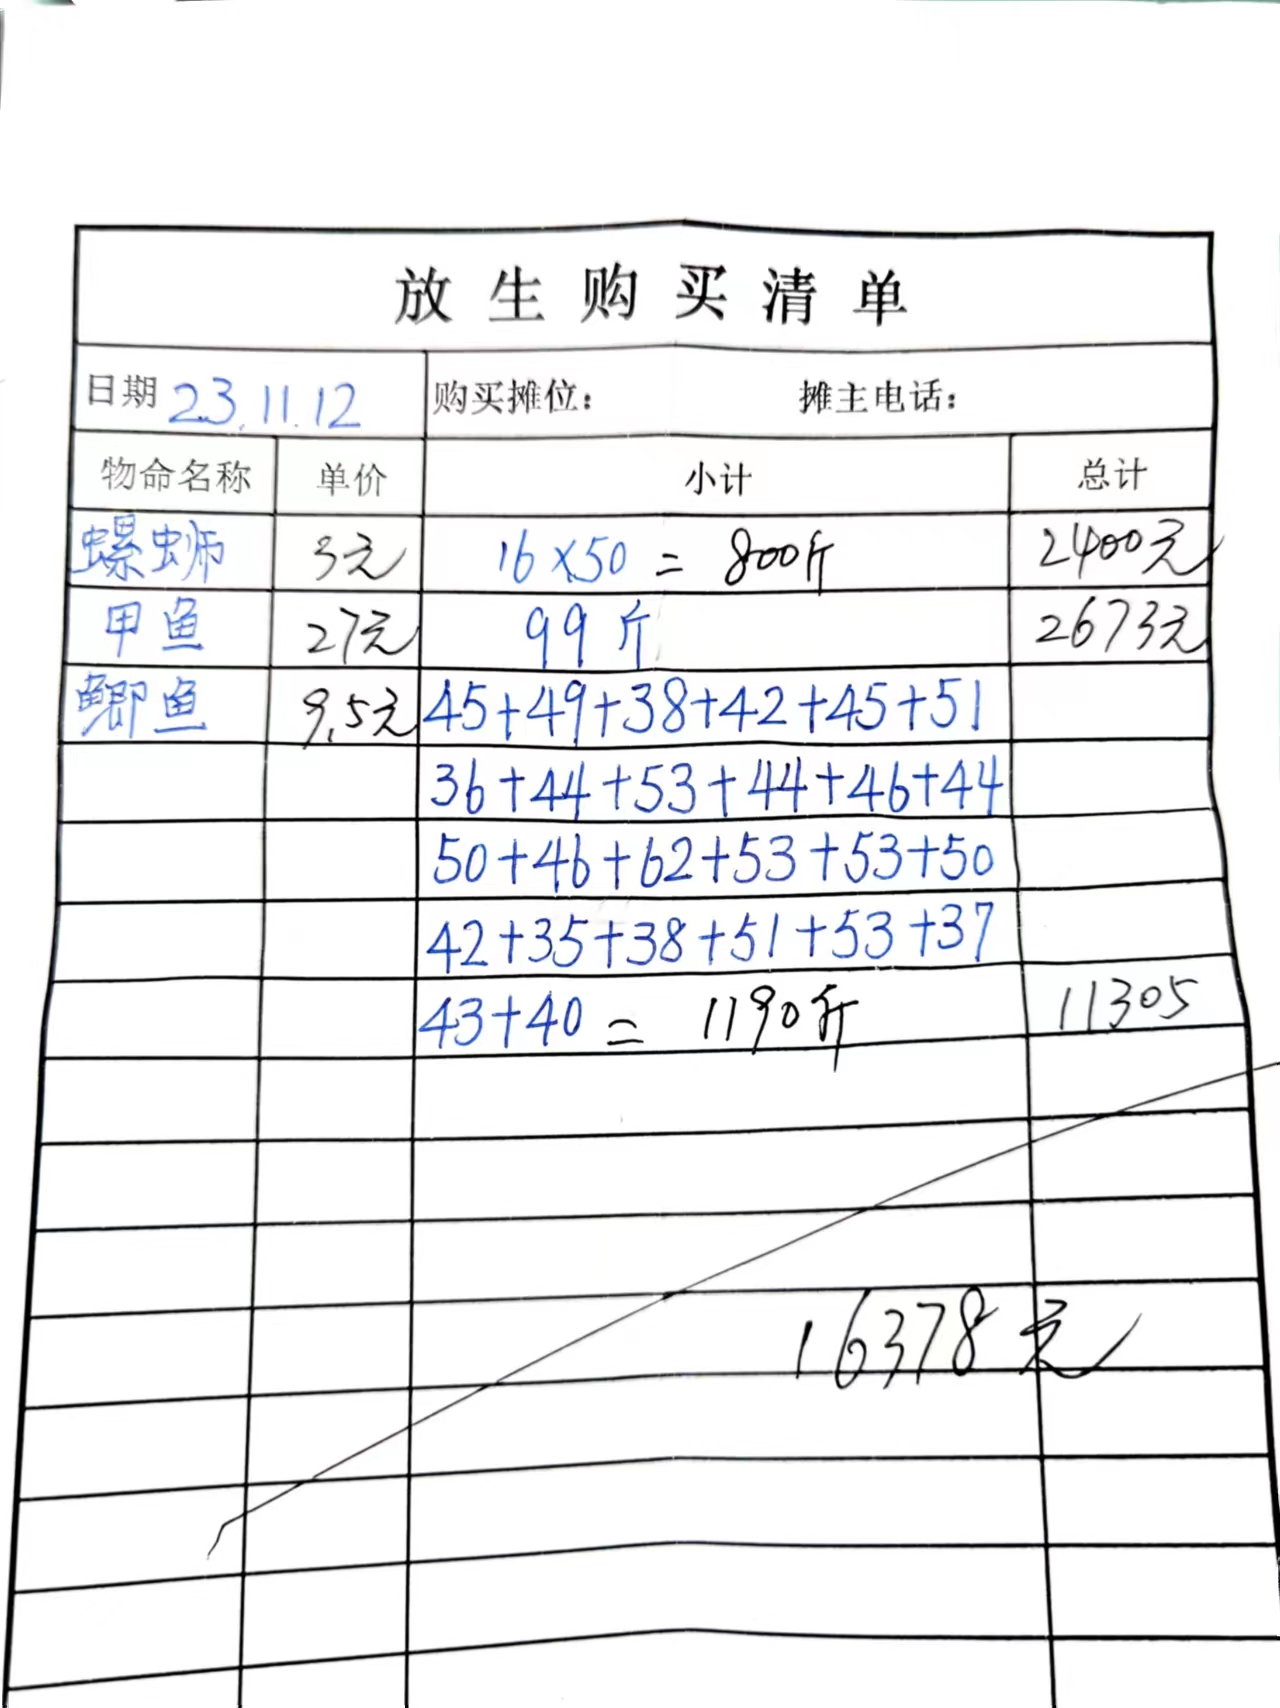 放生购买清单
日期 23.11.12 购买摊位: 摊主电话:
物命名称 单价 小计 总计
螺蛳 3元 16×50 = 800斤 2400元
甲鱼 27元 99斤 2673元
鲫鱼 9.5元 45+49+38+42+45+51
36+44+53+44+46+44
50+46+62+53+53+50
42+35+38+51+53+37
43+40 = 1190斤 11305
16378元